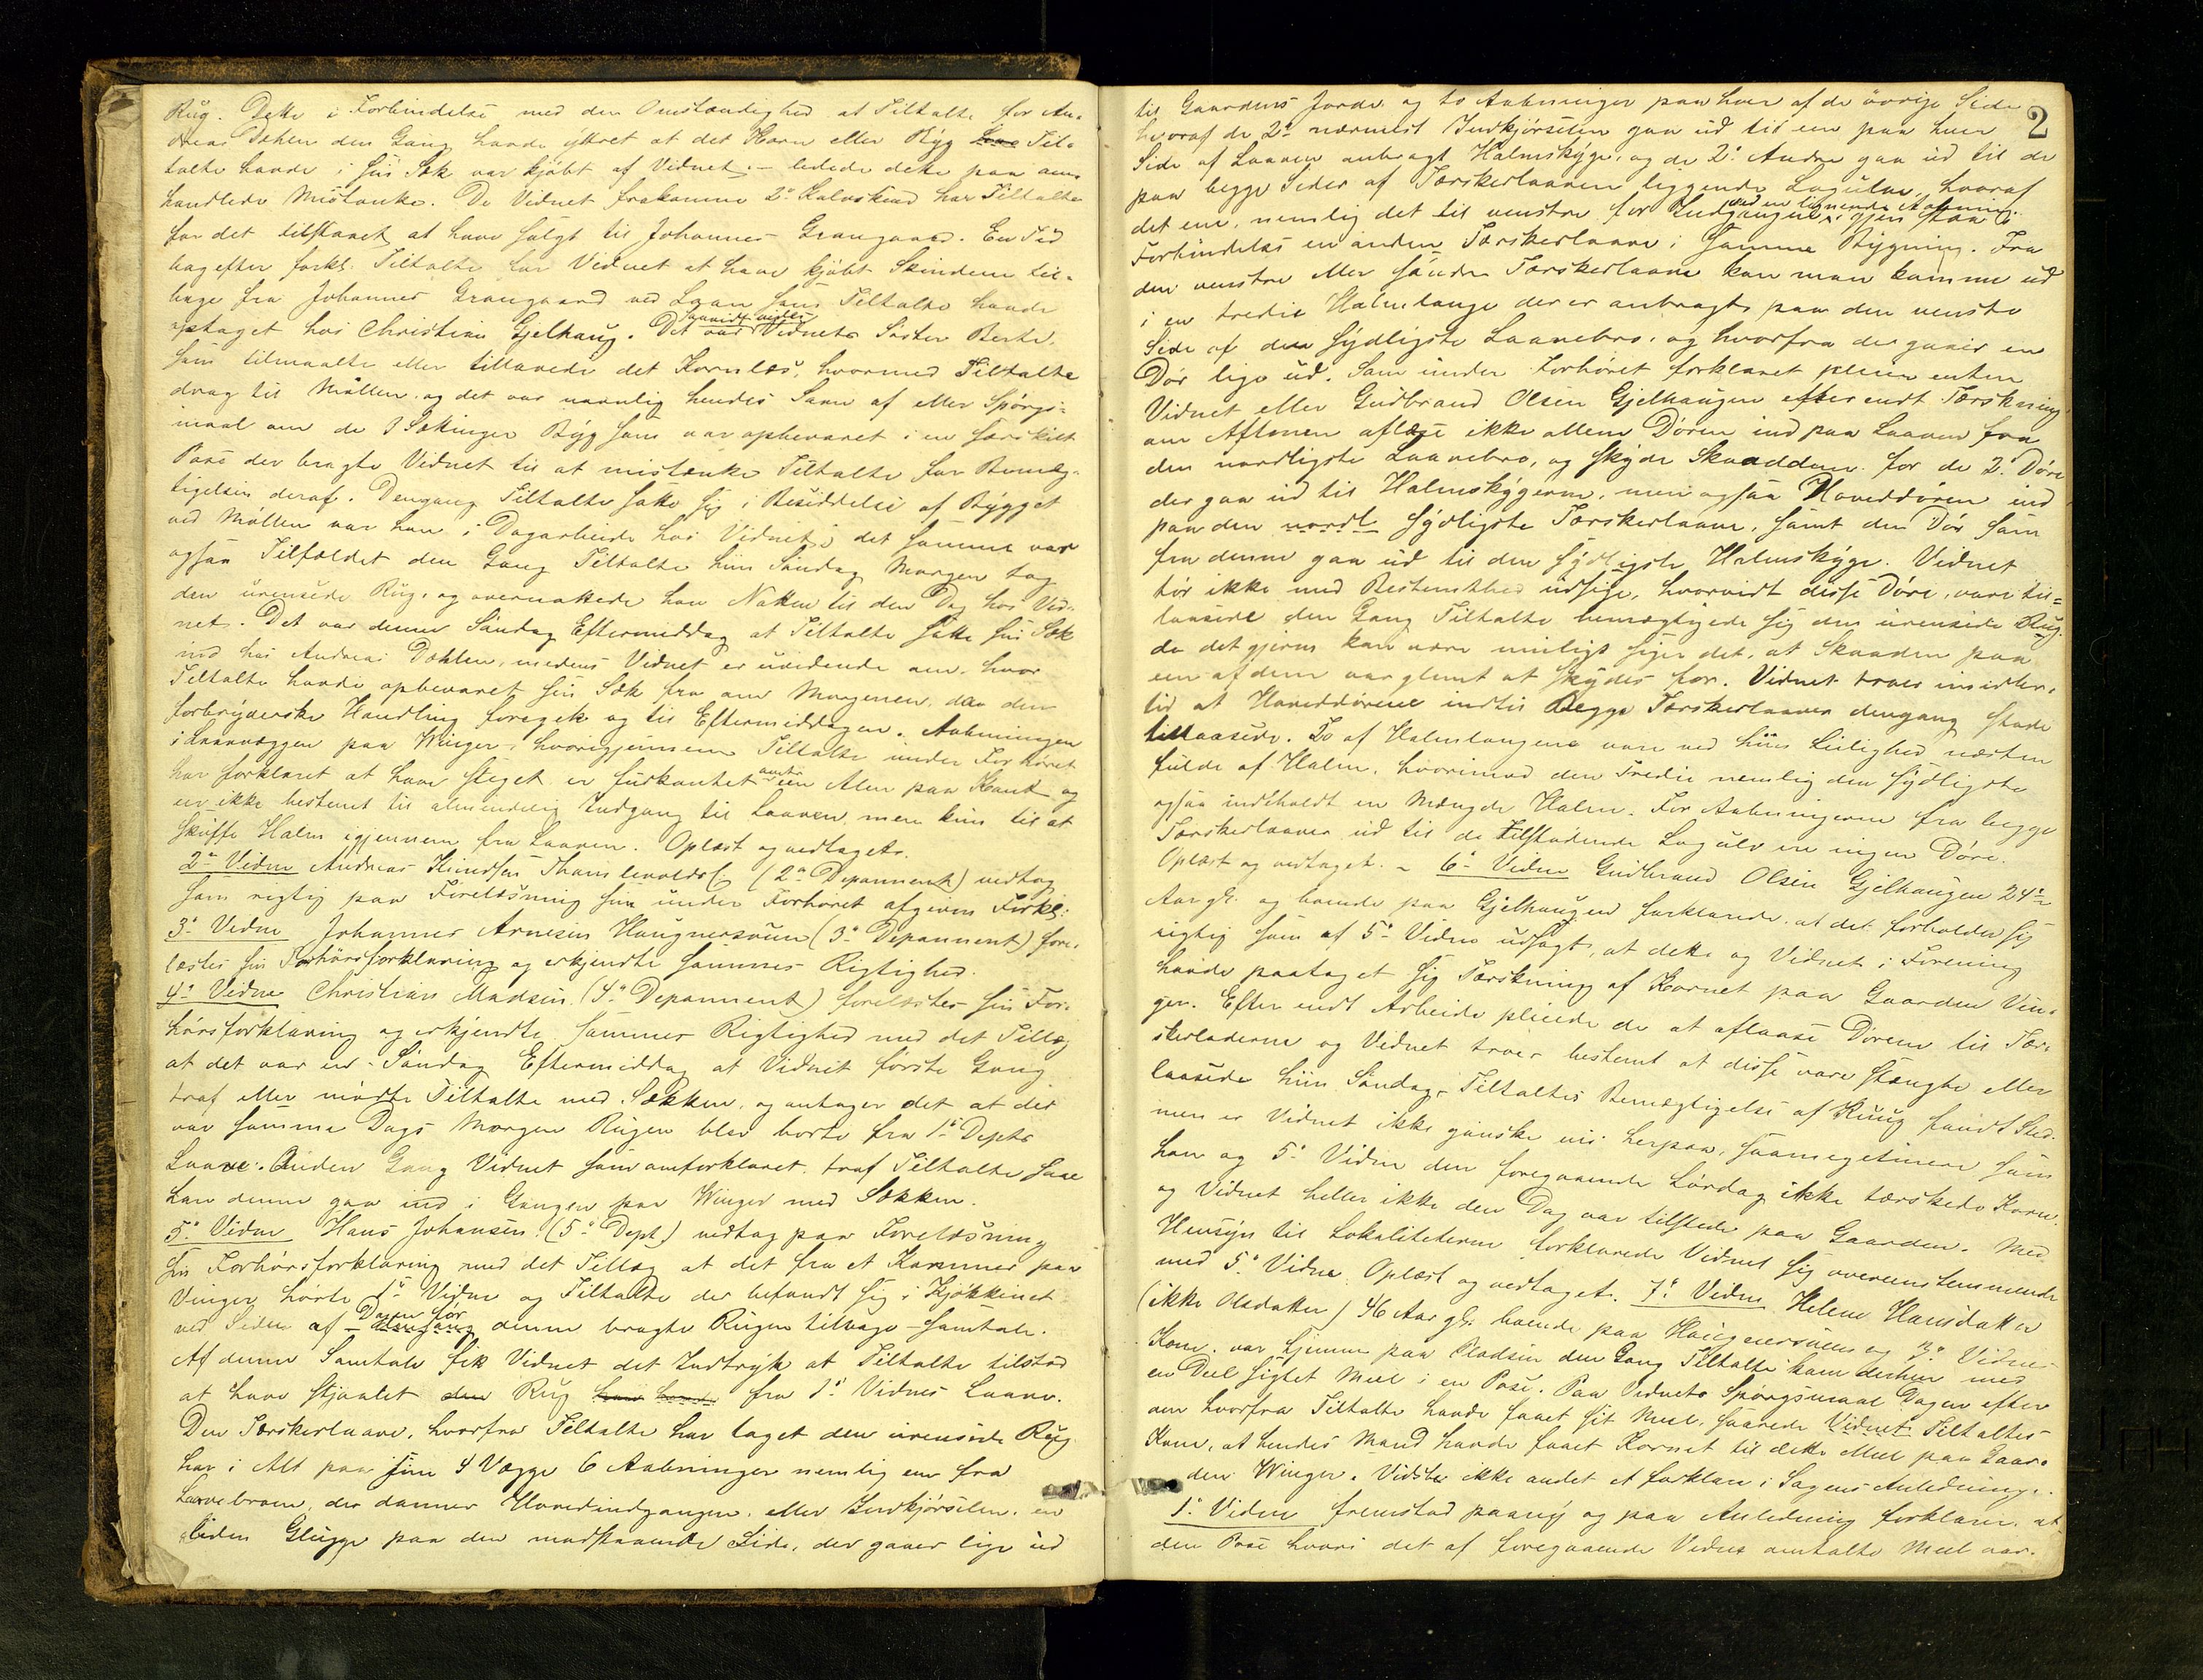 Rug. Dette i Forbindelse med den Omstændighed at Tiltalte for An-
dreas Dæhlen den Gang havde ÿttret at det Korn eller Bÿg Til-
talte havde i sin Sæk var kjøbt af Vidnet; ledede dette paa om-
handlede Mistanke. De Vidnet frakomne 2de Kalveskind har Tiltalte
for det tilstaaet at have solgt til Johannes Grangaard. En Tid
bagefter forkl. Tiltalte for Vidnet at have kjøbt Skindene til-
bage fra Johannes Grangaard ved Laan som Tiltalte havde
optaget hos Christian Gjelhaug. Det var saavidt vides Vidnets Søster Berte,
som tilmaalte eller tillavede det Kornlæs, hvormed Tiltalte
drog til Møllen, og det var navnlig hendes Savn af eller Spørgs-
maal om de 3 Sækinger Bÿg som var opbevaret i en særskilt
Pose der bragte Vidnet til at mistænke Tiltalte for Bemæg-
tigelsen deraf. Dengang Tiltalte satte sig i Besiddelse af Bÿgget
ved Møllen var han i Dagarbeide hos Vidnet; det samme var
ogsaa Tilfældet den Gang Tiltalte hiin Søndag Morgen tog
den urensede Rug, og overnattede han Natten til den Dag hos Vid-
net. Det var denne Søndag Eftermiddag at Tiltalte satte sin Sæk
ind hos Andreas Dæhlen, medens Vidnet er uvidende om, hvor
Tiltalte havde opbevaret sin Sæk fra om Morgenen, da den
forbrÿderske Handling foregik og til Eftermiddagen. Aabningen
i Laavvæggen paa Winger, hvorigjennem Tiltalte under Forhøret
har forklaret at have steget er firkantet omtr en Alen paa Kant og
er ikke bestemt til almindelig Indgang til Laaven, men kun til at
skuffe Halm igjennem fra Laaven. Oplæst og vedtaget.
2det Vidne Andreas Knudsen (2de Deponent) vedtog
som rigtig paa Forelæsning sin under Forhøret afgivne Forkl:
3die Vidne Johannes Arnesen Haugnersveen (3die Deponent) fore-
læstes sin Forhørsforklaring og erkjendte sammes Rigtighed.
4de Vidne Christian Madsen (4de Deponent) forelæstes sin For-
hørsforklaring og erkjendte sammes Rigtighed med det Tillæg
at det var en Søndag Eftermiddag at Vidnet første Gang
traf eller mødte Tiltalte med Sækken, og antager det at det
var samme Dags Morgen Rugen blev borte fra 1ste Depts
Laave. Anden Gang Vidnet som omforklaret traf Tiltalte saae
han denne gaa ind i Gangen paa Winger med Sækken.
5te Vidne Hans Johansen (5te Dept) vedtog paa Forelæsning
sin Forhørsforklaring med det Tillæg at det fra et Kammer paa
Vinger hørte 1ste Vidne og Tiltalte der befandt sig i Kjøkkenet
ved Siden af Dagen før denne bragte Rugen tilbage samtale.
Af denne Samtale fik Vidnet det Indtrÿk at Tiltalte tilstod
at have stjaalet den Rug fra 1ste Vidnes Laave.
Den Tærskerlaave, hvorfra Tiltalte har taget den urensede Rug
har i Alt paa sine 4 Vægge 6 Aabninger nemlig en fra
Laavebroen, der danner Hovedindgangen, eller Indkjørselen, en
liden Glugge paa den modstaaende Side, der gaaer lige ud
2
til Gaardens Jorde og to Aabninger paa hver af de øvrige Sider
hvoraf de 2de nærmest Indkjørselen gaa ud til em paa hver
Side af Laaven anbragt Halmskÿge, og de 2de Andre gaa ud til de
paa begge Sider af Tærskerlaaven liggende Laagulve, hvoraf
det ene, nemlig det til venstre for Indgangen, ved en lignende Aabning igjen staar i
Forbindelse en anden Tærskerlaave i samme Bÿgning. Fra
den venstre eller søndre Tærskerlaave kan man komme ud
i en tredie Halmlænge der er anbragt paa den venstre
Side af den sÿdligste Laavebro, og hvorfra der gaaer en
Dør lige ud. Som under Forhøret forklaret pleier enten
Vidnet eller Gudbrand Olsen Gjelhaugen efter endt Tærskning
om Aftenen aflaase ikke allene Døren ind paa Laaven fra
den nordligste Laavebro, og skÿde Skaadden for de 2 Døre
der gaa ud til Halmskÿgerne, men ogsaa Hoveddøren ind
paa den nordl sÿdligste Tærskerlaave, samt den Dør som
fra denne gaa ud til den sÿdligste Halmskÿge. Vidnet
tør ikke med Bestemthed udsige, hvorvidt disse Døre, vare til-
laasede den Gang Tiltalte bemægtigede sig den urensede Rug
da det gjerne kan være muligt siger det, at Skaaden paa
een af dem var glemt at skÿdes for. Vidnet troer imidler-
tid at Hoveddørene indtil Begge Tærskerlaaver dengang stode
tillaasede. To af Halmlængene vare ved hiin Leilighed næsten
fulde af Halm, hvorimod den Tredie nemlig den sÿdligste
ogsaa indeholdt en Mængde Halm. For Aabningerne fra begge
Tærskerlaaver ud til de tilstødende Lagulv er ingen Døre.
Oplæst og vedtaget. - 6te Vidne Gudbrand Olsen Gjelhaugen 24
Aar gl. og boende paa Gjelhaugen forklarede, at det forholder sig
rigtig som af 5te Vidne udsagt, at dette og Vidnet i Forening
havde paataget sig Tærskning af Kornet paa Gaarden Vin-
ger. Efter endt Arbeide pleiede de at aflaase Dørene til Tær-
skerladerne og Vidnet troer bestemt at disse vare stængte eller
laasede hiin Søndag, Tiltaltes Bemægtigelse af Ruug fandt Sted
men er Vidnet ikke ganske vis herpaa, saameget mere som
han og 5te Vidne den foregaaende Lørdag ikke tærskede Korn,
og Vidnet heller ikke den Dag var tilstede paa Gaarden. Med
Hensÿn til Lokaliteterne forklarede Vidnet sig overeensstemmende
med 5te Vidne. Oplæst og vedtaget. 7de Vidne Helene Hansdatter
(ikke Olsdatter) 46 Aar gl. boende paa Haugnersveen og 3die Vidnes
Kone, var hjemme paa Pladsen den Gang Tiltalte kom derhen med
en Deel sigtet Meel i en Pose. Paa Vidnets Spørgsmaal Dagen efter
om hvorfra Tiltalte havde faaet sit Meel, svarede Vidnet Tiltaltes
Kone, at hendes Mand havde faaet Kornet til dette Meel paa Gaar-
den Winger. Vidste ikke andet at forklare i Sagens Anledning.
1ste Vidne fremstod paanÿ og paa Anledning forklarer at
den Pose hvori det af foregaaende Vidne omtalte Meel var.